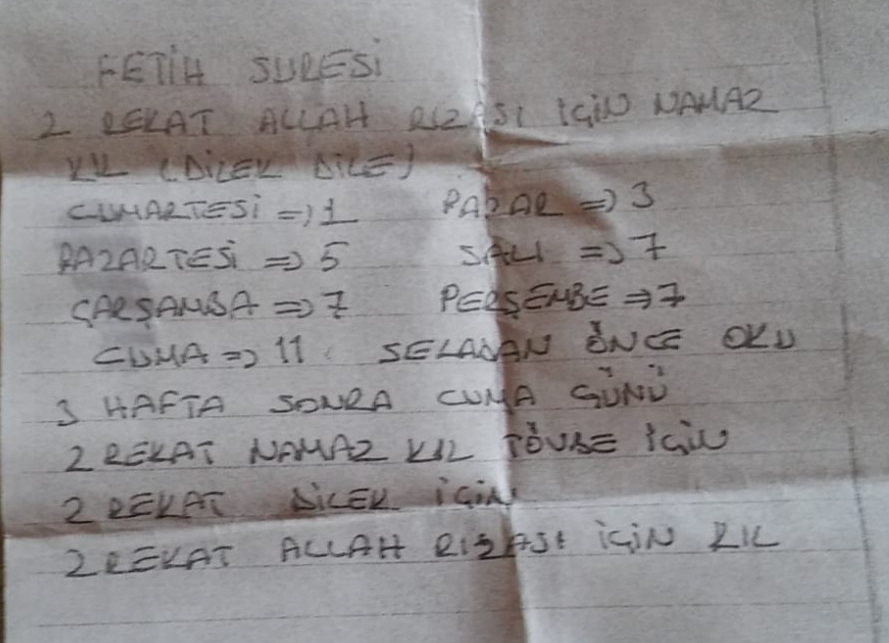 FETİH SURESİ
2 REKAT ALLAH RIZASI İÇİN NAMAZ
KIL (DİLEK DİLE)
CUMARTESİ => 1 PAZAR => 3
PAZARTESİ => 5 SALI => 7
ÇARŞAMBA => 7 PERŞEMBE => 7
CUMA => 11 SELADAN ÖNCE OKU
3 HAFTA SONRA CUMA GÜNÜ
2 REKAT NAMAZ KIL TÖVBE İÇİN
2 REKAT DİLEK İÇİN
2 REKAT ALLAH RIZASI İÇİN KIL